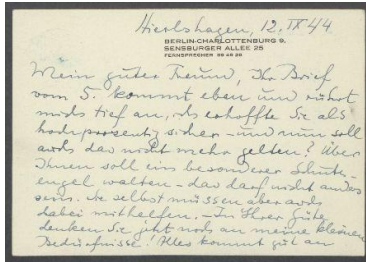 Hierlshagen, 12. IX 44
BERLIN-CHARLOTTENBURG 9,
SENSBURGER ALLEE 25
FERNSPRECHER 99 46 28
Mein guter Freund, Ihr Brief
vom 5. kommt eben und rührt
mich tief an, ich erhoffte Sie als
hochprozentig sicher – und nun soll
auch das nicht mehr gelten? Über
Ihnen soll ein besonderer Schutz-
engel walten – das darf nicht anders
sein. Sie selbst müssen aber auch
dabei mithelfen. – In Ihrer Güte
denken Sie jetzt noch an meine kleinen
Bedürfnisse! Alles kommt gut an